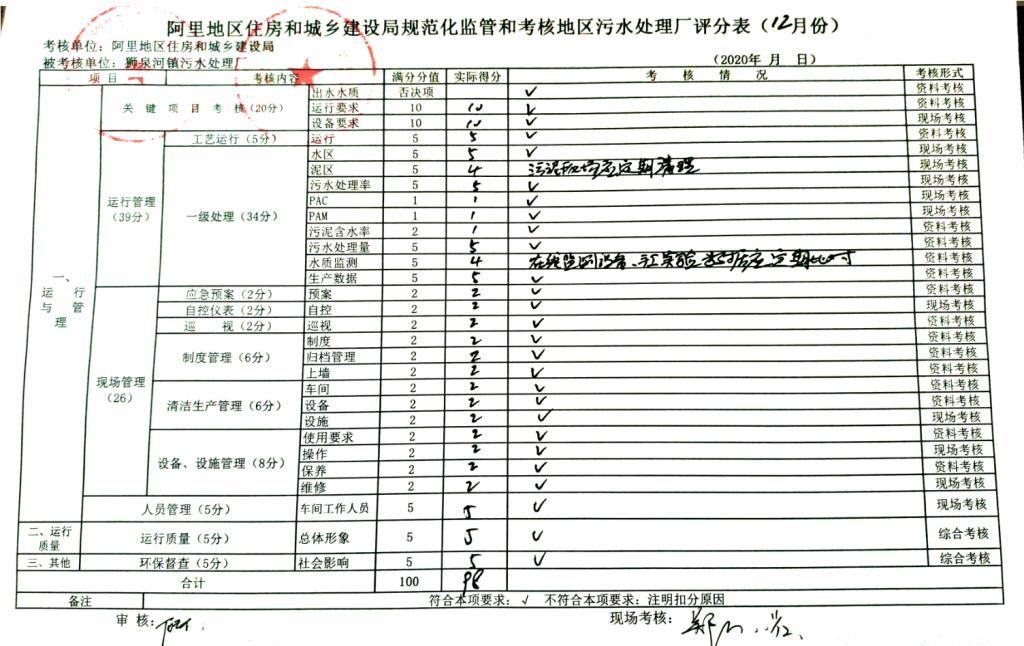 阿里地区住房和城乡建设局规范化监管和考核地区污水处理厂评分表（12月份）
考核单位：阿里地区住房和城乡建设局
被考核单位：狮泉河镇污水处理厂 （2020年 月 日）
项目 考核内容 满分分值 实际得分 考 核 情 况 考核形式
一、运行与管理
关键项目考核（20分） 出水水质 否决项 ✓ 资料考核
运行要求 10 10 ✓ 资料考核
设备要求 10 10 ✓ 现场考核
运行管理（39分） 工艺运行（5分） 运行 5 5 ✓ 资料考核
一级处理（34分） 水区 5 5 ✓ 现场考核
泥区 5 4 定期清理 现场考核
污水处理率 5 5 ✓ 现场考核
PAC 1 1 ✓ 现场考核
PAM 1 1 ✓ 现场考核
污泥含水率 2 1 ✓ 资料考核
污水处理量 5 5 ✓ 资料考核
水质监测 5 4 在线监测设备、定期比对 资料考核
生产数据 5 5 ✓ 资料考核
现场管理（26） 应急预案（2分） 预案 2 2 ✓ 资料考核
自控仪表（2分） 自控 2 2 ✓ 现场考核
巡 视（2分） 巡视 2 2 ✓ 资料考核
制度管理（6分） 制度 2 2 ✓ 资料考核
归档管理 2 2 ✓ 资料考核
上墙 2 2 ✓ 资料考核
清洁生产管理（6分） 车间 2 2 ✓ 资料考核
设备 2 2 ✓ 资料考核
设施 2 2 ✓ 现场考核
设备、设施管理（8分） 使用要求 2 2 ✓ 资料考核
操作 2 2 ✓ 现场考核
保养 2 2 ✓ 资料考核
维修 2 2 ✓ 现场考核
人员管理（5分） 车间工作人员 5 5 ✓ 现场考核
二、运行质量 运行质量（5分） 总体形象 5 5 ✓ 综合考核
三、其他 环保督查（5分） 社会影响 5 5 ✓ 综合考核
合计 100 98
备注 符合本项要求：√ 不符合本项要求：注明扣分原因
审 核： 现场考核：